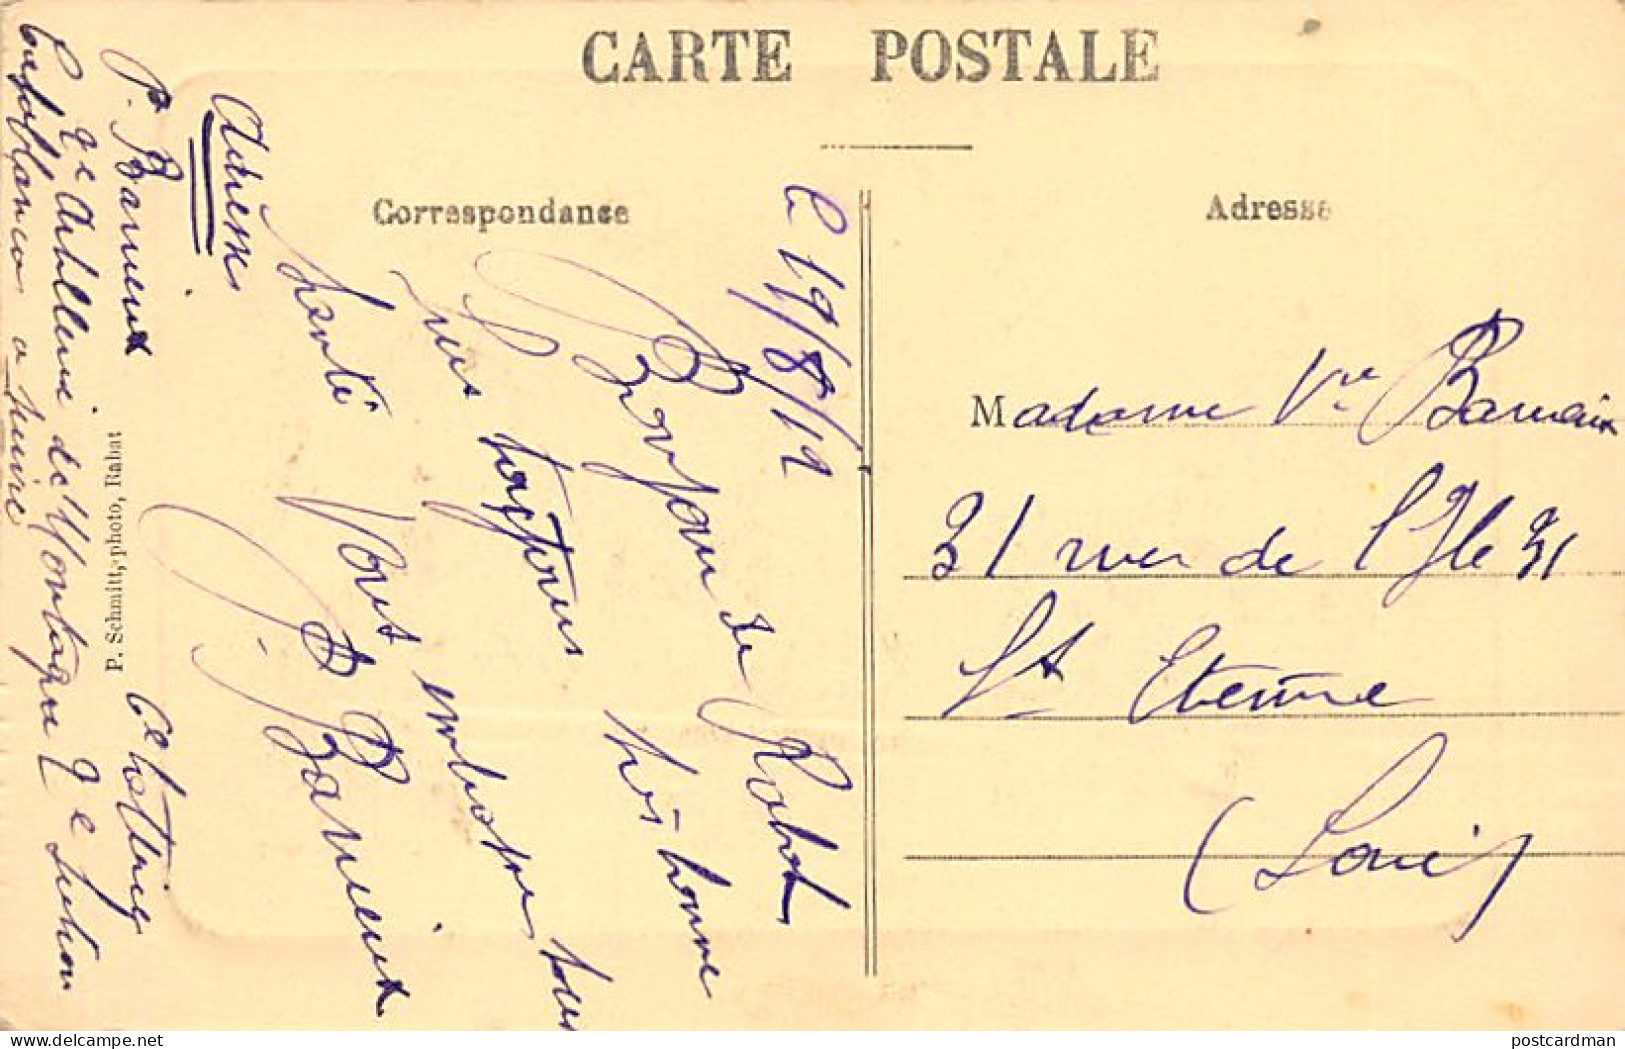 CARTE POSTALE
Correspondance
Adresse
Le 19/8/12
Bonjour de Rabat
Suis toujours très bonne
santé Vous embrasse tous
P Barrieux
Adresse
P. Barrieux
2e Artillerie de Montagne 2e section
Casablanca
P. Schmitt, photo, Rabat
Madame Vve Barrieux
31 rue de l'Ile 31
St Etienne
(Loire)
postcardman